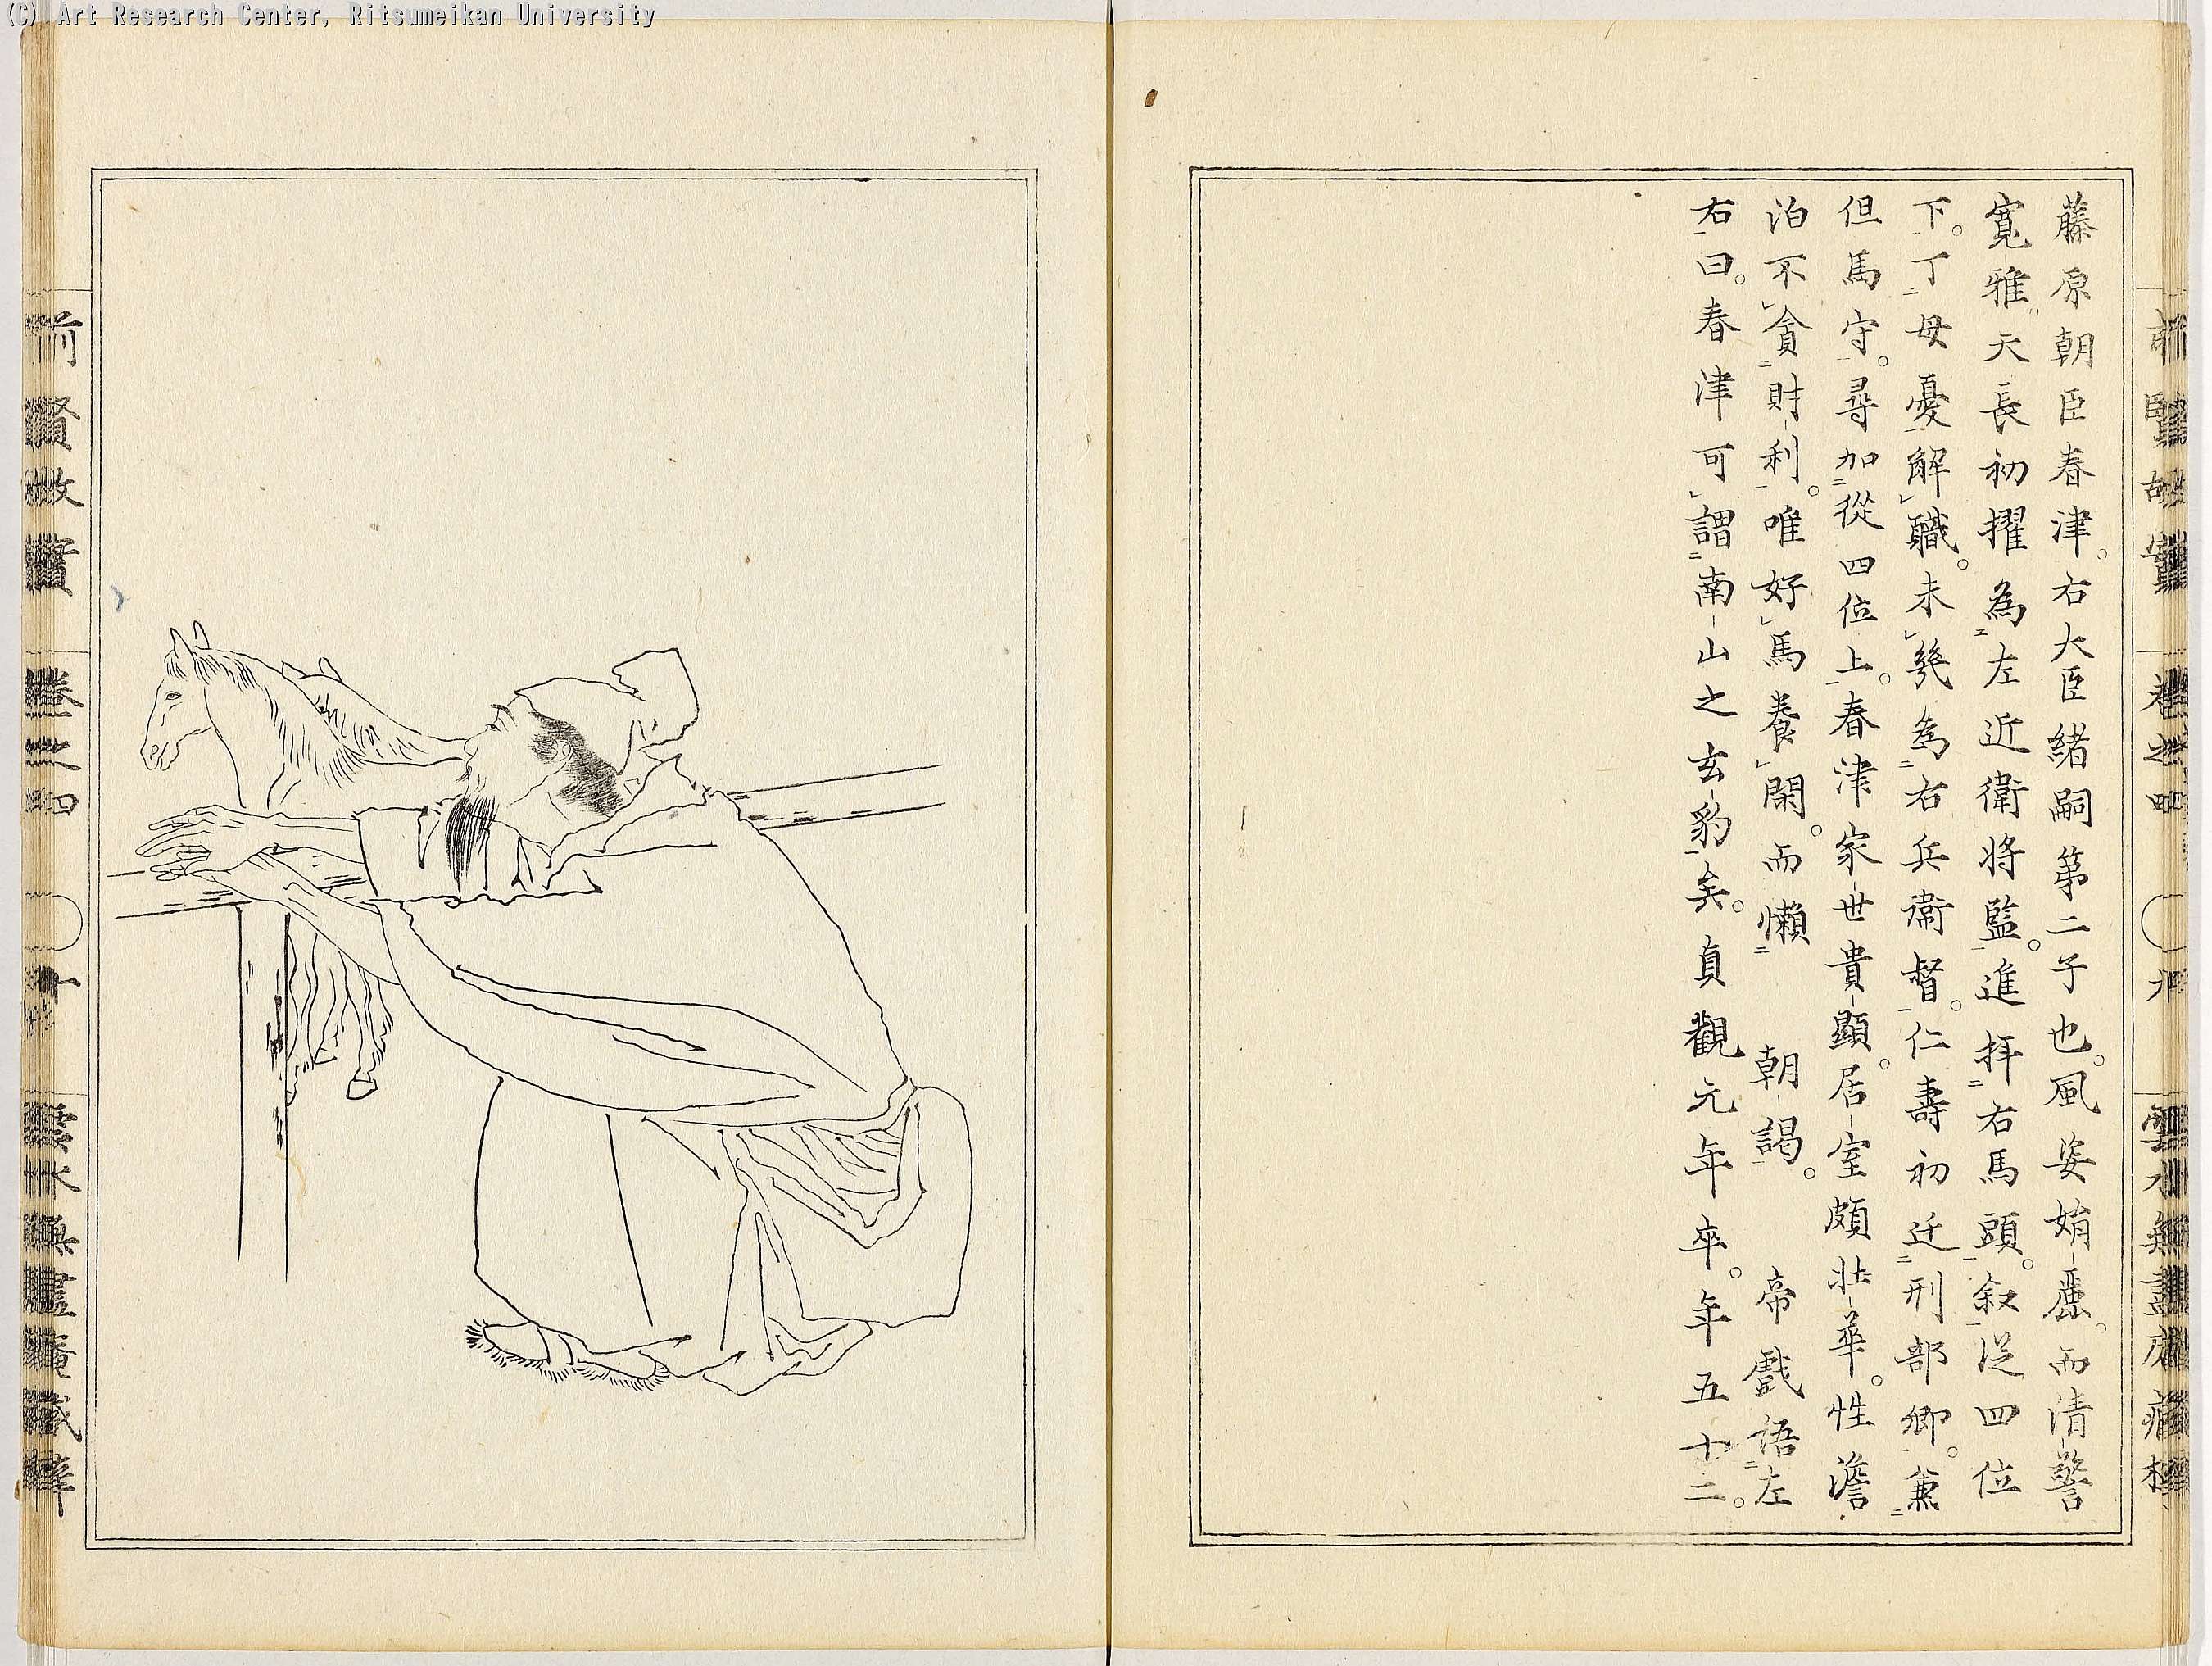 (C) Art Research Center, Ritsumeikan University
前賢故實 卷之四 九 雲水無盡庵藏梓
藤原朝臣春津。右大臣緒嗣第二子也。風姿娟麗。而清警
寬雅。天長初擢為左近衛將監。進拜右馬頭。叙從四位
下。丁母憂解職。未幾為右兵衛督。仁壽初迁刑部卿。兼
但馬守。尋加從四位上。春津家世貴顯。居室頗壯華。性澹
泊不貪財利。唯好馬養閑。而懶 朝謁。 帝戲語左
右曰。春津可謂南山之玄豹矣。貞觀元年卒。年五十二。
前賢故實 卷之四 十 雲水無盡庵藏梓